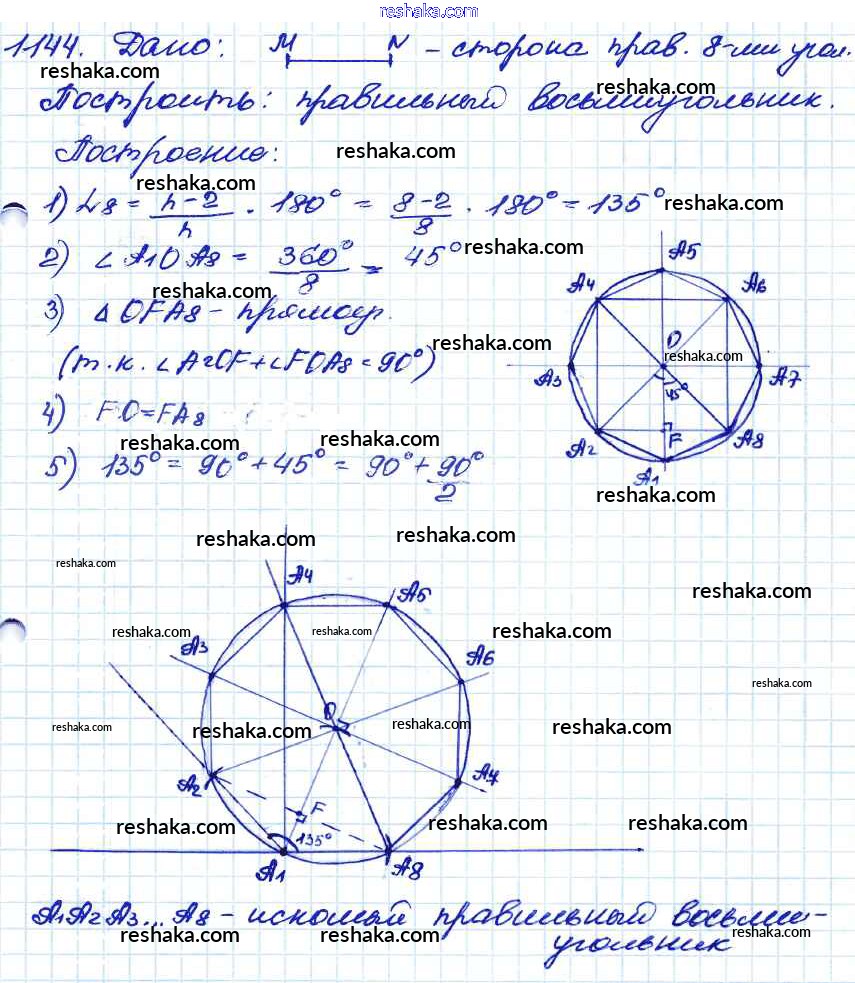 reshaka.com
1144. Дано: M N - сторона прав. 8-ми угол.
reshaka.com
reshaka.com
Построить: правильный восьмиугольник.
Построение:
reshaka.com
reshaka.com
1) ∠8 = n-2/n · 180° = 8-2/8 · 180° = 135°
reshaka.com
2) ∠A1OA8 = 360°/8 = 45°
reshaka.com
reshaka.com
3) △OFA8 - прямоуг.
(т.к. ∠A2OF+∠FOA8=90°)
reshaka.com
4) FO=FA8
reshaka.com
reshaka.com
5) 135° = 90°+45° = 90°+90°/2
A5
A4 A6
O
reshaka.com
A3 A7
45°
A2 F A8
A1
reshaka.com
reshaka.com
reshaka.com
reshaka.com
A4 A5
reshaka.com
reshaka.com
reshaka.com
reshaka.com
A3 A6
reshaka.com
O
reshaka.com
reshaka.com
reshaka.com
reshaka.com
A2 A7
F
reshaka.com
reshaka.com
reshaka.com
135°
A1 A8
A1A2A3...A8 - искомый правильный восьми-
угольник
reshaka.com
reshaka.com
reshaka.com
reshaka.com